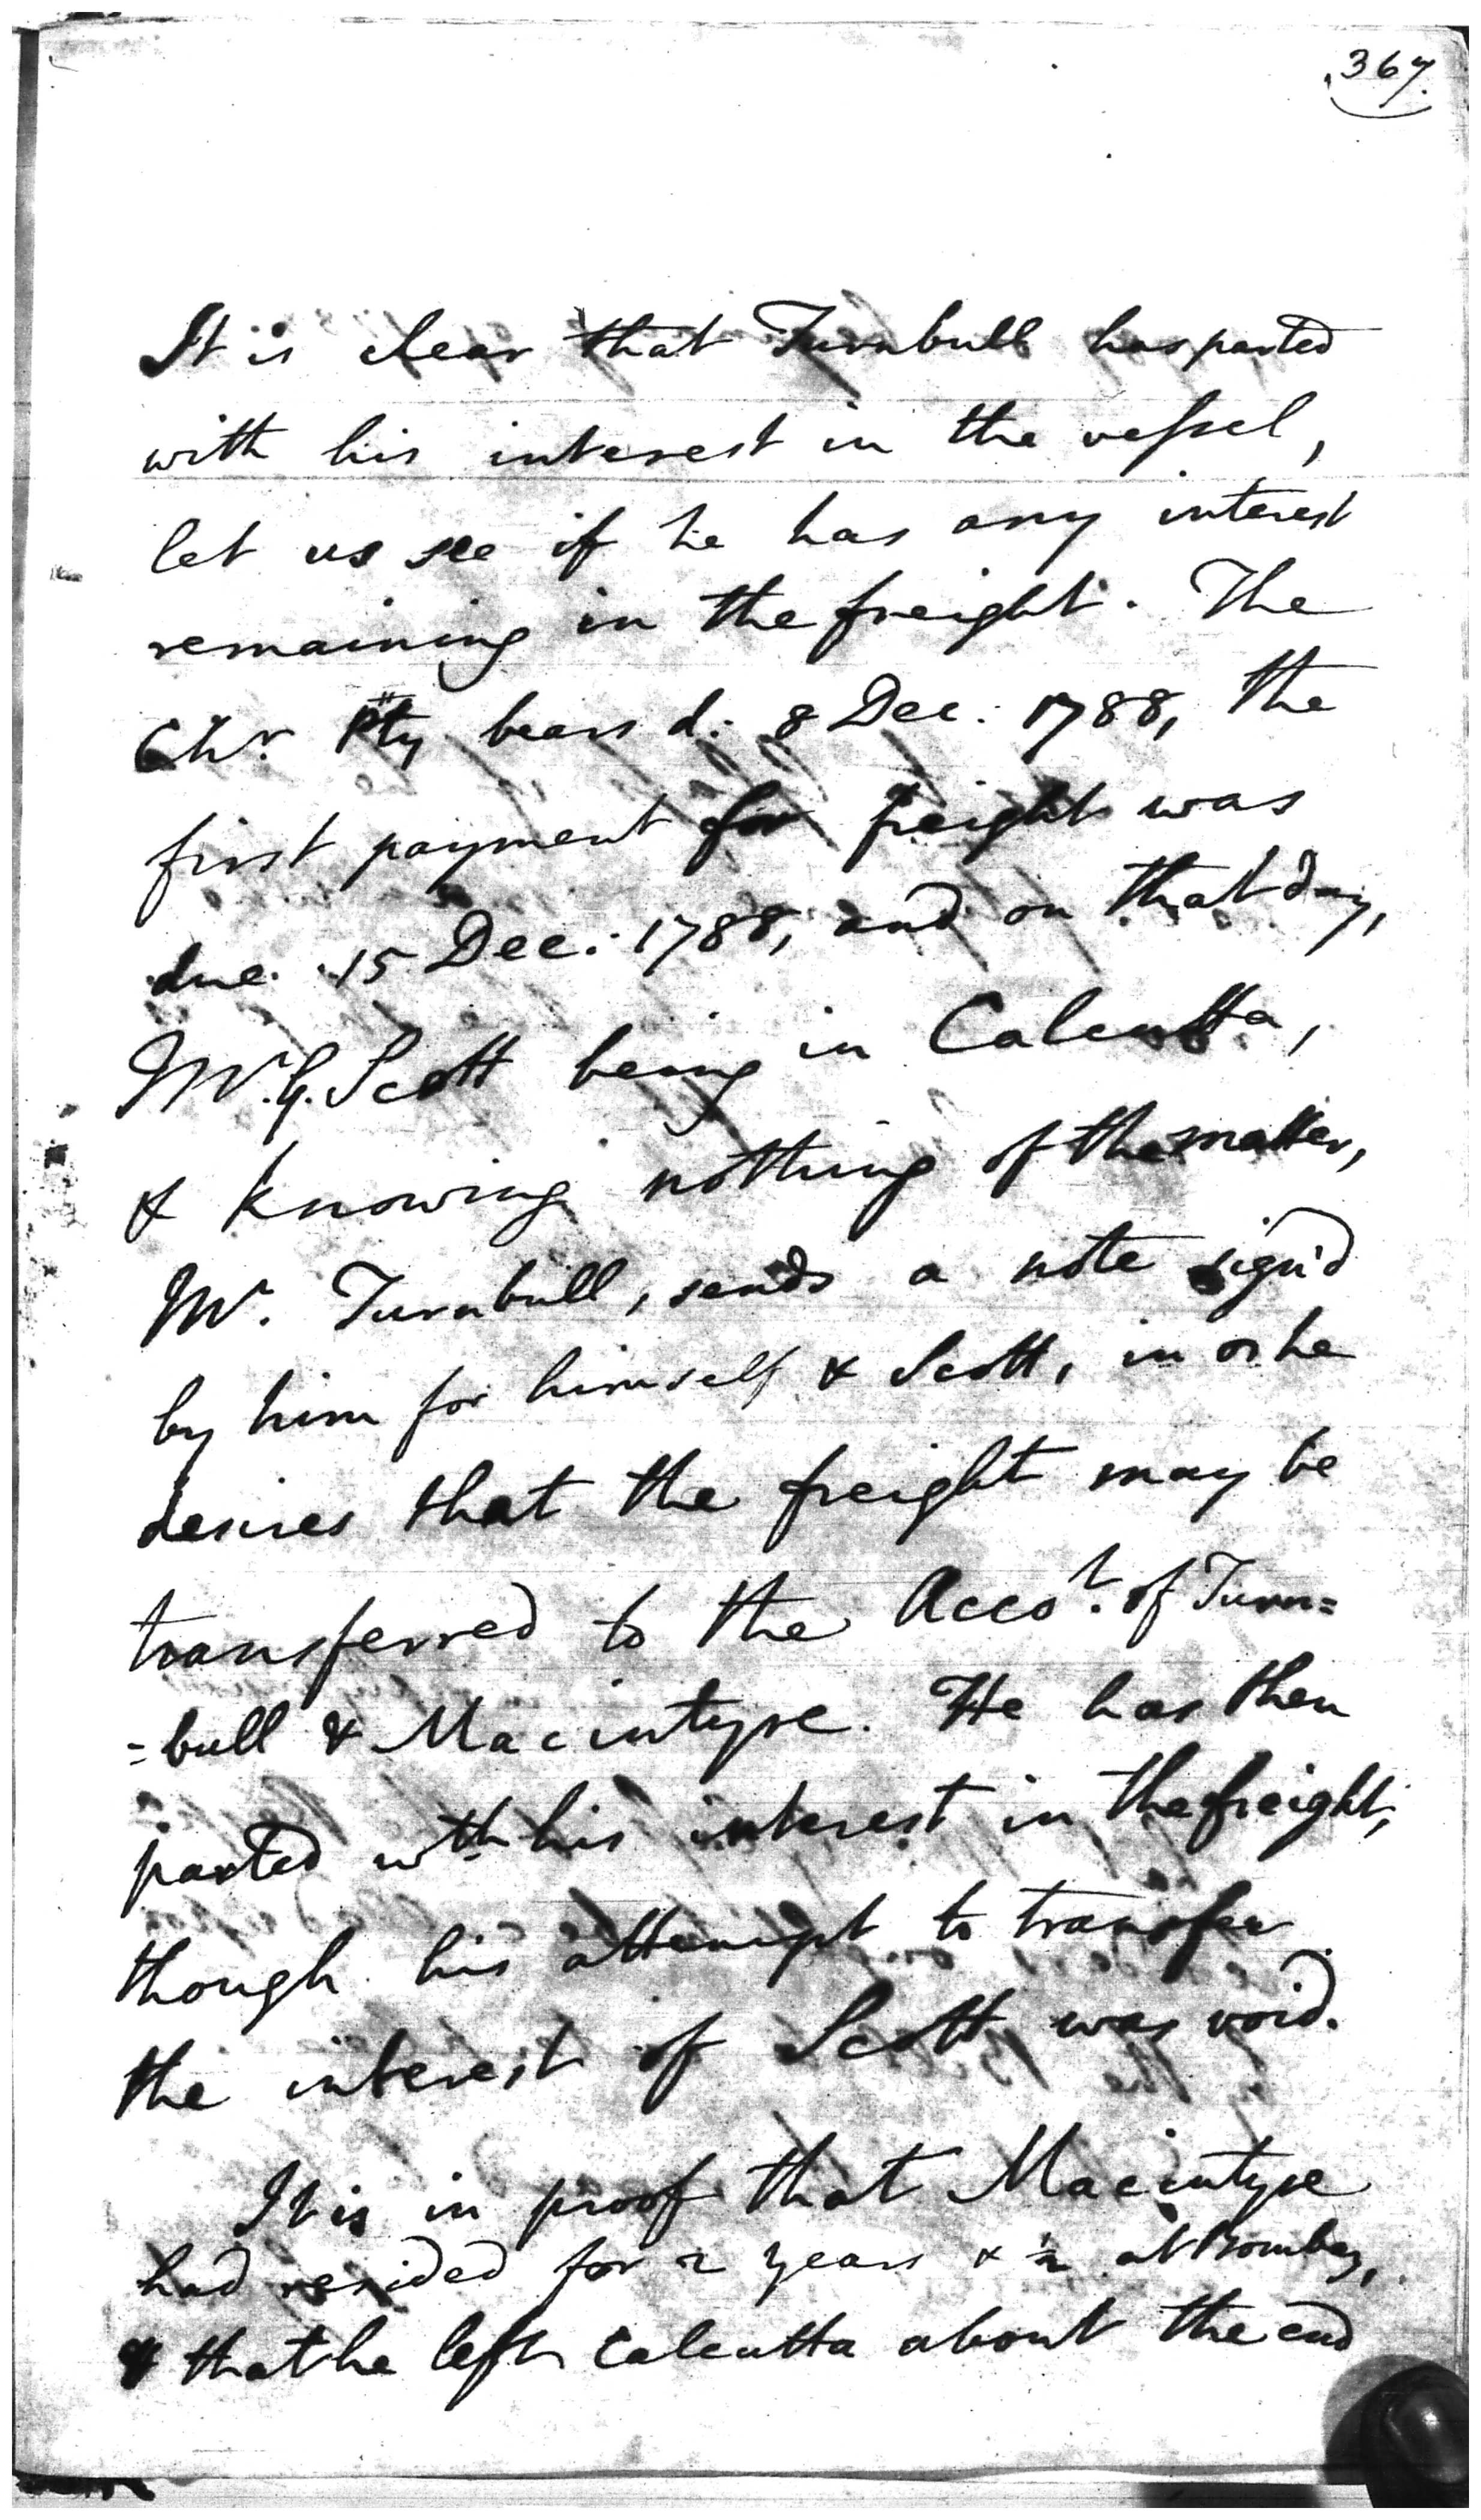 367.
It is clear that Turnbull has parted
with his interest in the vessel,
let us see if he has any interest
remaining in the freight. The
Chr. Pty bears d. 8 Dec. 1788, the
first payment for freight was
due 15 Dec. 1788, and on that day,
Mr. G. Scott being in Calcutta,
& knowing nothing of the matter,
Mr. Turnbull, sends a note sign'd
by him for himself & Scott, in he
desires that the freight may be
transferred to the Acco.t of Turn=
=bull & Macintyre. He has then
parted wth his interest in the freight,
though his attempt to transfer
the interest of Scott was void.
It is in proof that Macintyre
had resided for 2 years & ½ at Bombay,
& that he left Calcutta about the end